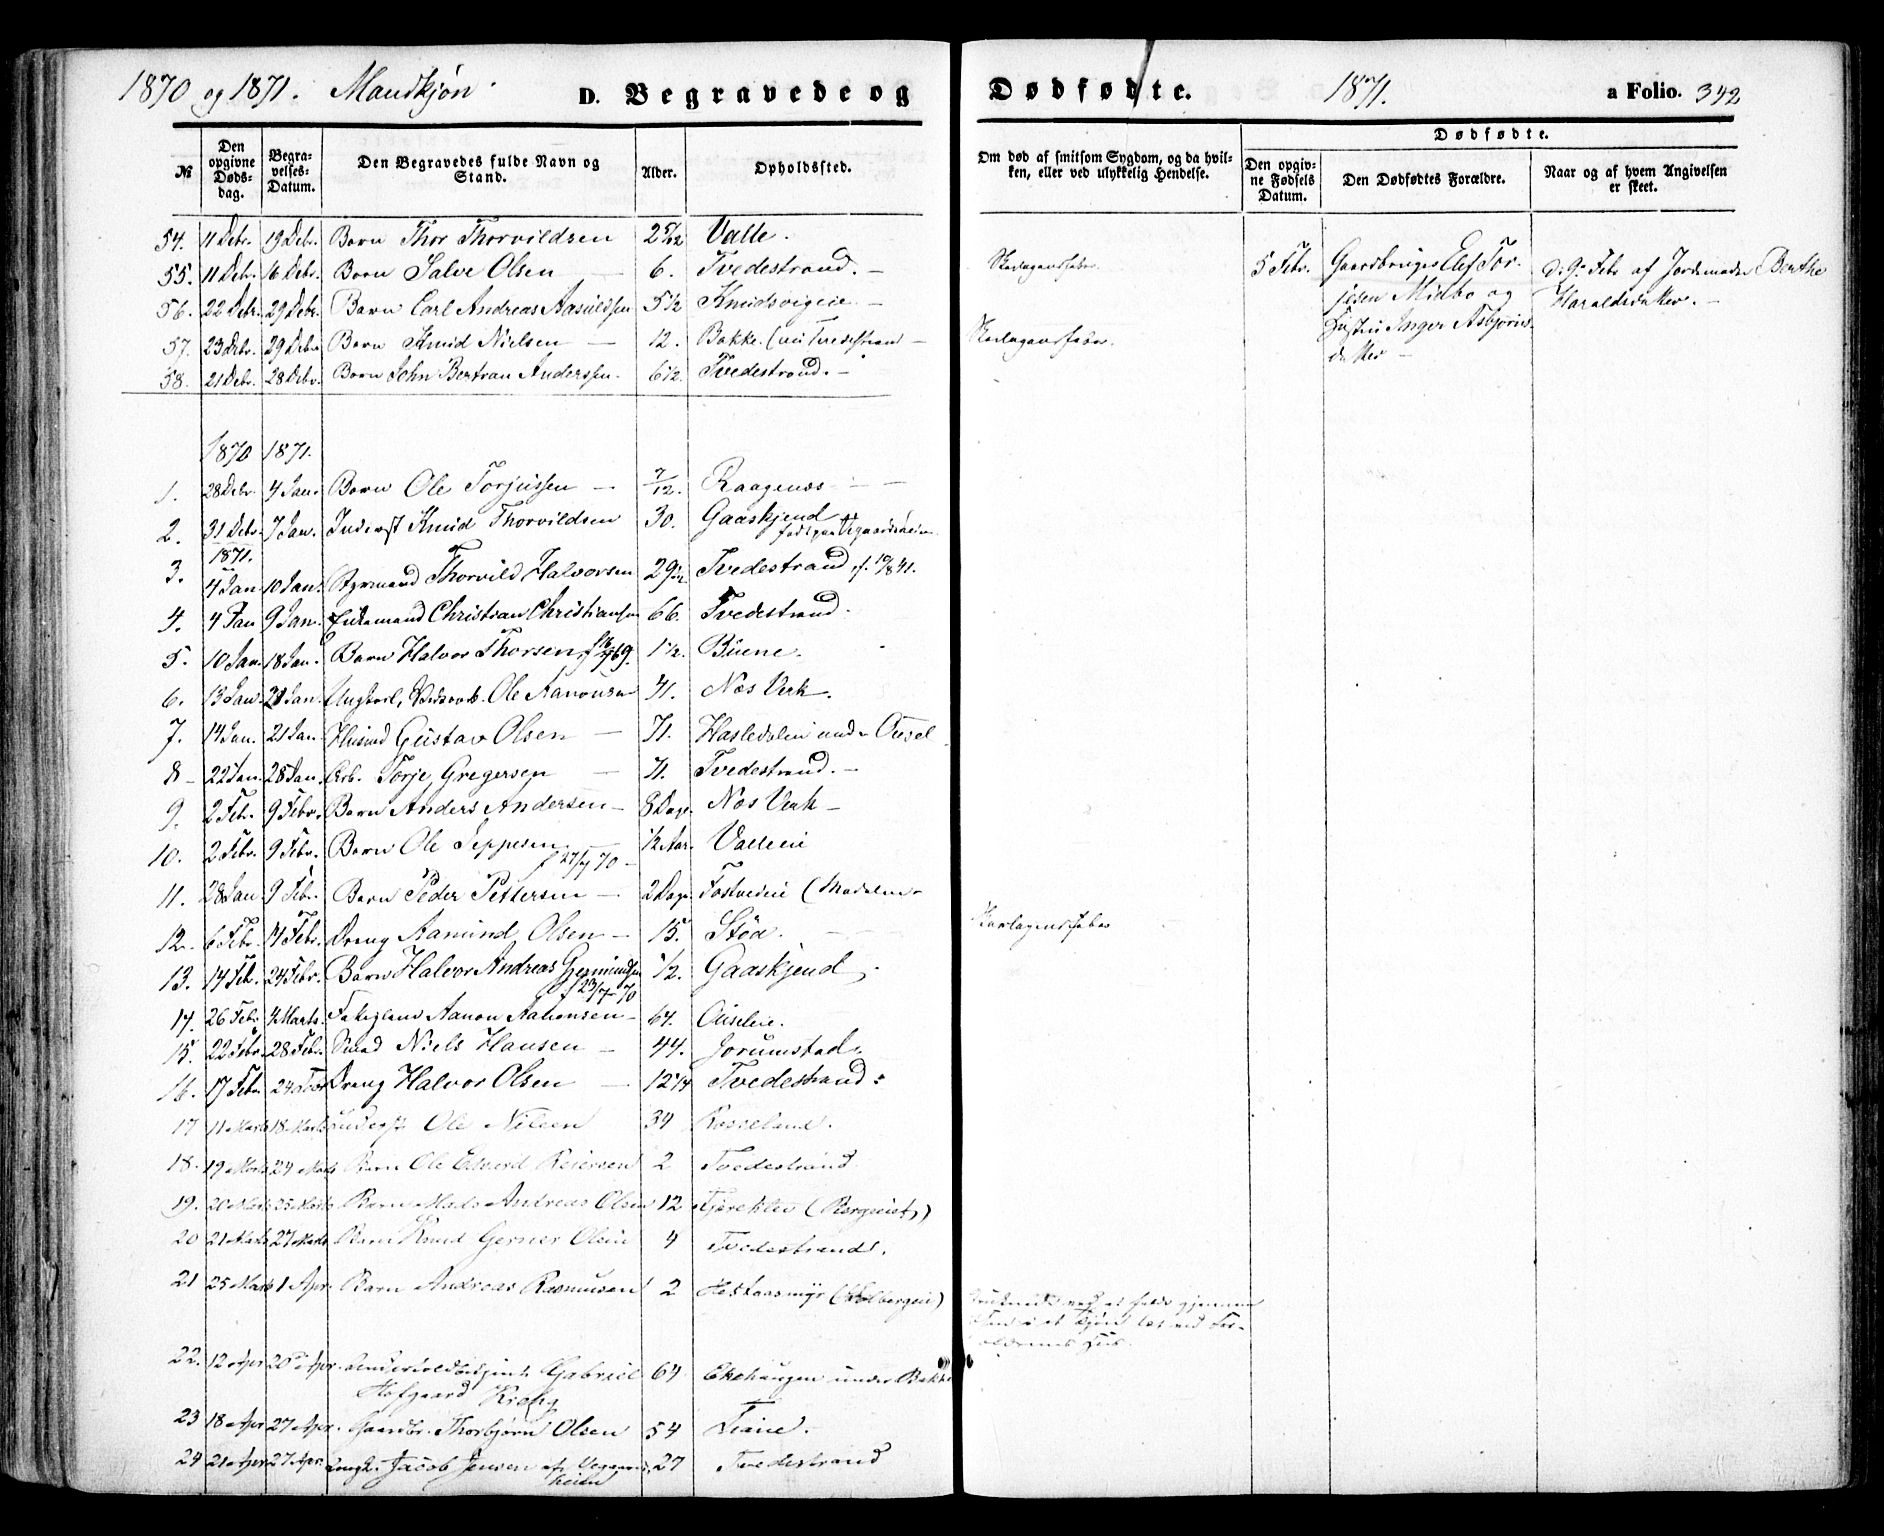 1870 og 1871. Mandkjøn. D. Begravede og Dødfødte. 1871. a Folio. 342
Dødfødte.
№ Den opgivne Døds-dag. Begra-velses-Datum. Den Begravedes fulde Navn og Stand. Alder. Opholdssted. Om død af smitsom Sygdom, og da hvil-ken, eller ved ulykkelig Hendelse. Den opgiv-ne Fødsels Datum. Den Dødfødtes Forældre. Naar og af hvem Angivelsen er skeet.
54. 11 Debr. 19 Debr. Barn Thor Thorvildsen 2 5/12 Valle.
55. 11 Debr. 16 Debr. Barn Salve Olsen — 6. Tvedestrand. — Skarlagensfeber. 5 Febr. Gaardbruger Elef Tor-
jesen Midbo og
Hustru Inger Asbjørns-
datter —
d. 9. Febr af Jordemoder Berthe
Haraldsdatter. —
56. 22 Debr. 29 Debr. Barn Carl Andreas Aasuldsen 5 1/2 Knudsvigeie —
57. 23 Debr. 29 Debr. Barn Knud Nielsen — 12. Bakke (vei Tvedestrand — Skarlagensfeber.
58. 21 Debr. 28 Debr. Barn John Bertran Andersen. 6 1/2. Tvedestrand. —
1870 1871.
1. 28 Debr. 4 Jan. Barn Ole Torjussen — 7/12. Raagenæs — —
2. 31 Debr. 7 Jan. Inderst Knud Thorvildsen 30. Gaaskjend
1871.
3. 4 Jan 10 Jan. Styrmand Thorvild Halvorsen 29 Tvedestrand f. 10/8 41.
4. 4 Jan 9 Jan. Enkemand Christian Christiansen 66. Tvedestrand.
5. 10 Jan. 18 Jan. Barn Halvor Thorsen 69. 1 1/2. Buene.
6. 13 Jan 21 Jan Ungkarl, Ole Aanonsen 41. Næs Verk.
7. 14 Jan. 21 Jan. Husmd Gustav Olsen — 71. Hasledalen under Ousel
8 - 22 Jan. 28 Jan. Arb. Torje Gregersen — 71. Tvedestrand. —
9. 2 Feb. 9 Febr. Barn Anders Andersen — 8 Dage Næs Verk —
10. 2 Febr. 9 Febr. Barn Ole Jeppesen 1/2 Aar. Valleeie
f 27/7 70 —
11. 28 Jan 9 Febr. Barn Peder Pettersen — 2 Dage Fostvedeie (Madalen
12. 6 Febr. 14 Febr. Dreng Aamund Olsen — 15. Støa. — Skarlagensfeber
13. 14 Feb. 24 Febr. Barn Halvor Andreas Germundsen 1/2. Gaaskjend.
f 23/7 70
14. 26 Febr. 4 Marts. Fatiglem Aanon Aanonsen — 64. Ouseleie.
15. 22 Febr. 28 Feb. Smed Niels Hansen — 44. Jorumstad.
16. 17 Febr. 24 Febr Dreng Halvor Olsen — 12 1/4 Tvedestrand.
17 11 Marts 18 Marts Inderst Ole Nilsen 34 Roseland.
18. 19 Marts 24 Marts Barn Ole Edvard Reiersen 2 Tvedestrand.
19. 20 Marts 25 Marts Barn Mads Andreas Olsen 12 Fjæreklev (Bergeiet,)
20 21 Marts 27 Marts Barn Knud Gerner Olsen 4 Tvedestrand.
21 25 Marts 1 Apr. Barn Andreas Rasmusen 2 Hestaasmyr (Holbergeie) Druknede ved at falde gjennem
Isen i et Kjøn tæt ved For-
ældrenes Hus.
22. 12 Apr 20 Apr. Gabriel 64 Ekehaugen under Bakke
Hofgaard Krohg
23 18 Apr 27 Apr. Gaardbr. Thorbjørn Olsen 54 Tiane.
24 21 Apr. 27 Apr. Ungk. Jacob Jensen af Vegaards- 27 Tvedestrand
heien